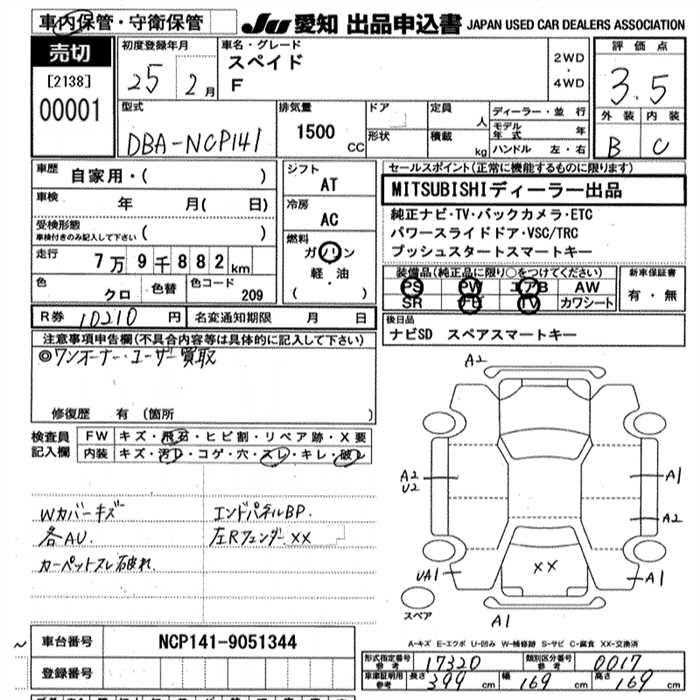 車内保管・守衛保管
JU 愛知 出品申込書 JAPAN USED CAR DEALERS ASSOCIATION
売切
[2138]
00001
初度登録年月
25 2月
車名・グレード
スペイド
F
2WD
・
4WD
評価点
3.5
外装 内装
B C
型式
DBA-NCP141
排気量
1500 CC
ドア
形状
定員 人
積載 kg
ディーラー・並行
モデル年式 年
ハンドル 左・右
車歴 自家用・( )
車検 年 月( 日)
受検形態
車検付きのみ記入して下さい ( )
走行 7万9千882km
色 クロ 色替 色コード 209
R券 10210 円 名変通知期限 月 日
シフト
AT
冷房
AC
燃料
ガソリン
軽・油
( )
セールスポイント(正常に機能するものに限ります)
MITSUBISHIディーラー出品
純正ナビ・TV・バックカメラ・ETC
パワースライドドア・VSC/TRC
プッシュスタートスマートキー
装備品(純正品に限り○をつけてください)
PS PW エアB AW
SR ナビ TV カワシート
新車保証書
有・無
後日品
ナビSD スペアスマートキー
注意事項申告欄(不具合内容等は具体的に記入して下さい)
◎ワンオーナー・ユーザー買取
修復歴 有 (箇所 )
検査員
記入欄
FW キズ・飛石・ヒビ割・リペア跡・X要
内装 キズ・汚レ・コゲ・穴・スレ・キレ・破レ
Wカバーキズ
各AU.
カーペットスレ破れ
エンドパネルBP.
左Rフェンダー××
A2
A2
U2
A1
A2
××
UA1
A1
A1
スペア
A-キズ E-エクボ U-凹み W-補修跡 S-サビ C-腐食 XX-交換済
車台番号 NCP141-9051344
登録番号
形式指定番号
参考 17320
類別区分番号
参考 0017
車庫証明用
参考 長さ 399cm 幅 169cm 高さ 169cm